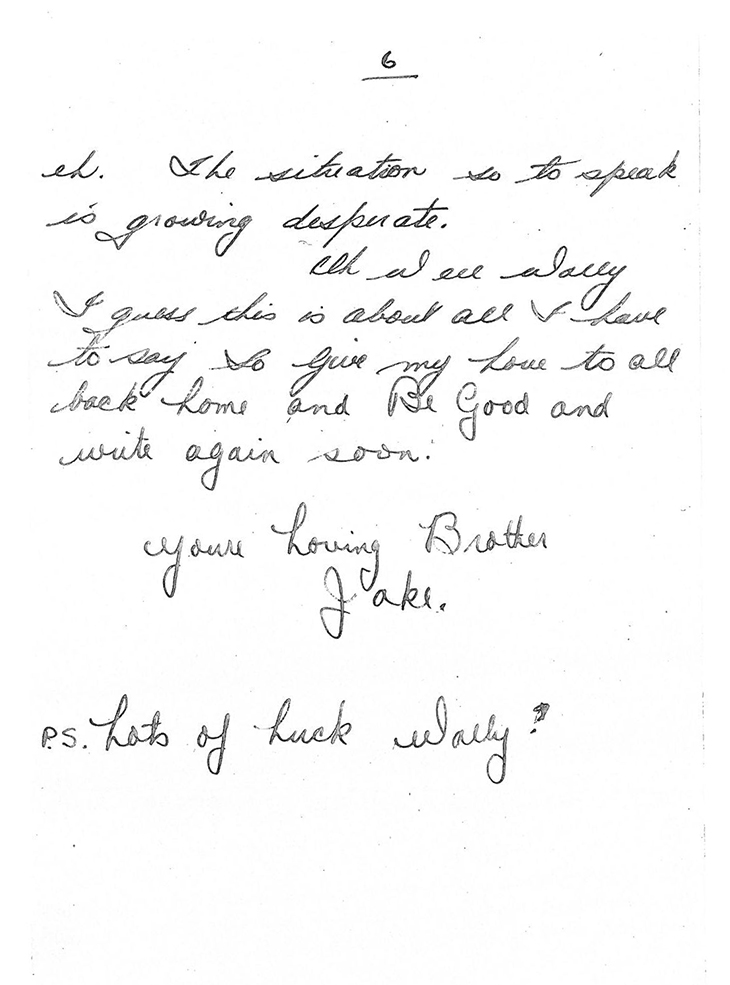 6
eh. The situation so to speak
is growing desperate.
Ah Well Wally
I guess this is about all I have
to say so Give my Love to all
back home and Be Good and
write again soon.
Youre Loving Brother
Jake.
P.S. Lots of Luck Wally?